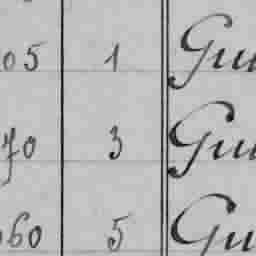 05 1 Gu
70 3 Gu
60 5 Gu